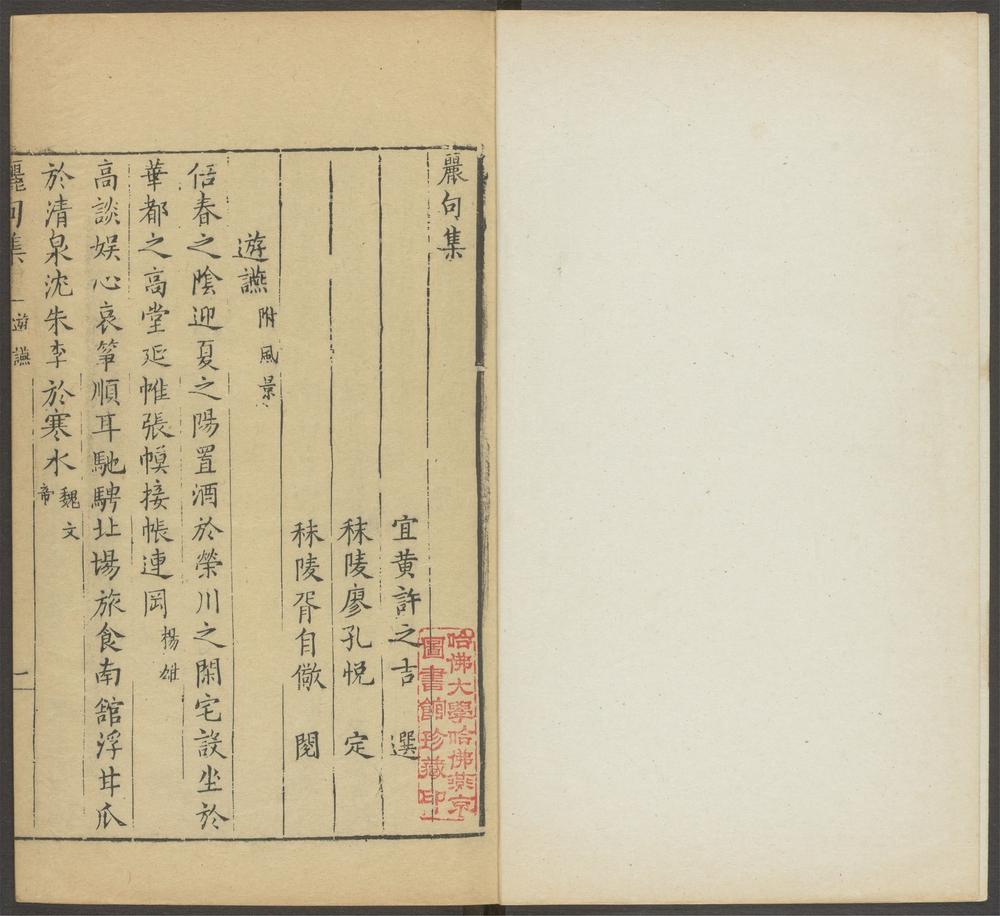 麗句集
宜黄許之吉 選
秣陵廖孔悦 定
秣陵胥自儆 閱
遊讌 附風景
偣春之陰迎夏之陽置酒於榮川之閑宅設坐於
華都之高堂延帷張幙接帳連岡 楊雄
高談娱心哀箏順耳馳騁北場旅食南舘浮甘瓜
於清泉沈朱李於寒水 魏文帝
麗句集 遊讌 一
哈佛大學哈佛燕京
圖書館珍藏印